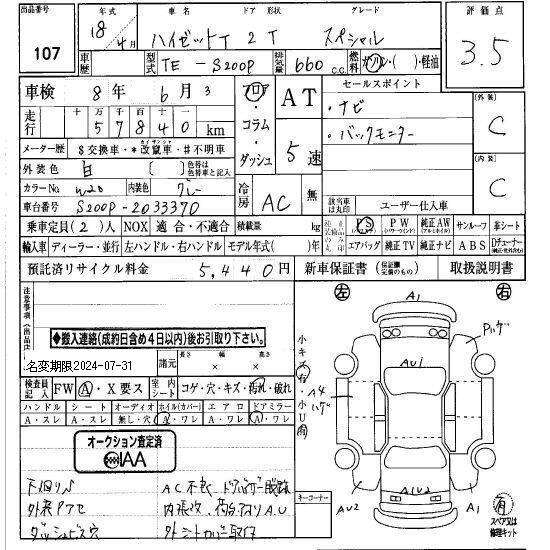 出品番号
107
年式 車名 ドア 形状 グレード 評価点
18年 4月 ハイゼットT 2 T スペシャル
3.5
車歴 型式 TE-S200P 排気量 660 c.c. 燃料 ガソリン・( )・軽油
車検 8年 6月 3
フロア・コラム・ダッシュ
AT
5速
セールスポイント
・ナビ
・バックモニター
外装 C
内装 C
走行 十万 万 千 百 十 一
57840 km
メーター歴 $交換車・*改竄車・#不明車
外装色 白 ( ) 色替は色替車と記入
カラーNo W20 内装色 グレー
冷房 AC 無
車台番号 S200P-2033370
該当車は丸印 ユーザー仕入車
乗車定員(2)人 NOX 適合・不適合 積載量 kg
PS PW 純正AW サンルーフ 革シート
輸入車 ディーラー・並行 左ハンドル・右ハンドル モデル年式( )年
エアバッグ 純正TV 純正ナビ ABS Dチューナー
預託済リサイクル料金 5,440円
新車保証書 (保証書 定期のもの) 取扱説明書
注意事項(出品店)
◆搬入連絡(成約日含め4日以内)後お引取り下さい。
名変期限2024-07-31
諸元 長さ 幅 高さ
× ×
検査員記入 FW A・X要ス 室内シート コゲ・穴・キズ・汚れ・破れ
ハンドル シート オーディオ ホイル(カバー) エアロ ドアミラー
A・スレ A・スレ 無し・穴 A・ワレ A・ワレ A・ワレ
オークション査定済
IAA
下廻りS AC不良
外装Pアセ 内張改、荷台アオリA.U
ダッシュビス穴 外シートカバー取付
左 右
A1
Pハゲ
AU1
A4
ハゲ
小キズ 有 ・小U 有
AU2
A1U2
A1
キーコーナー
有
スペア又は修理キット